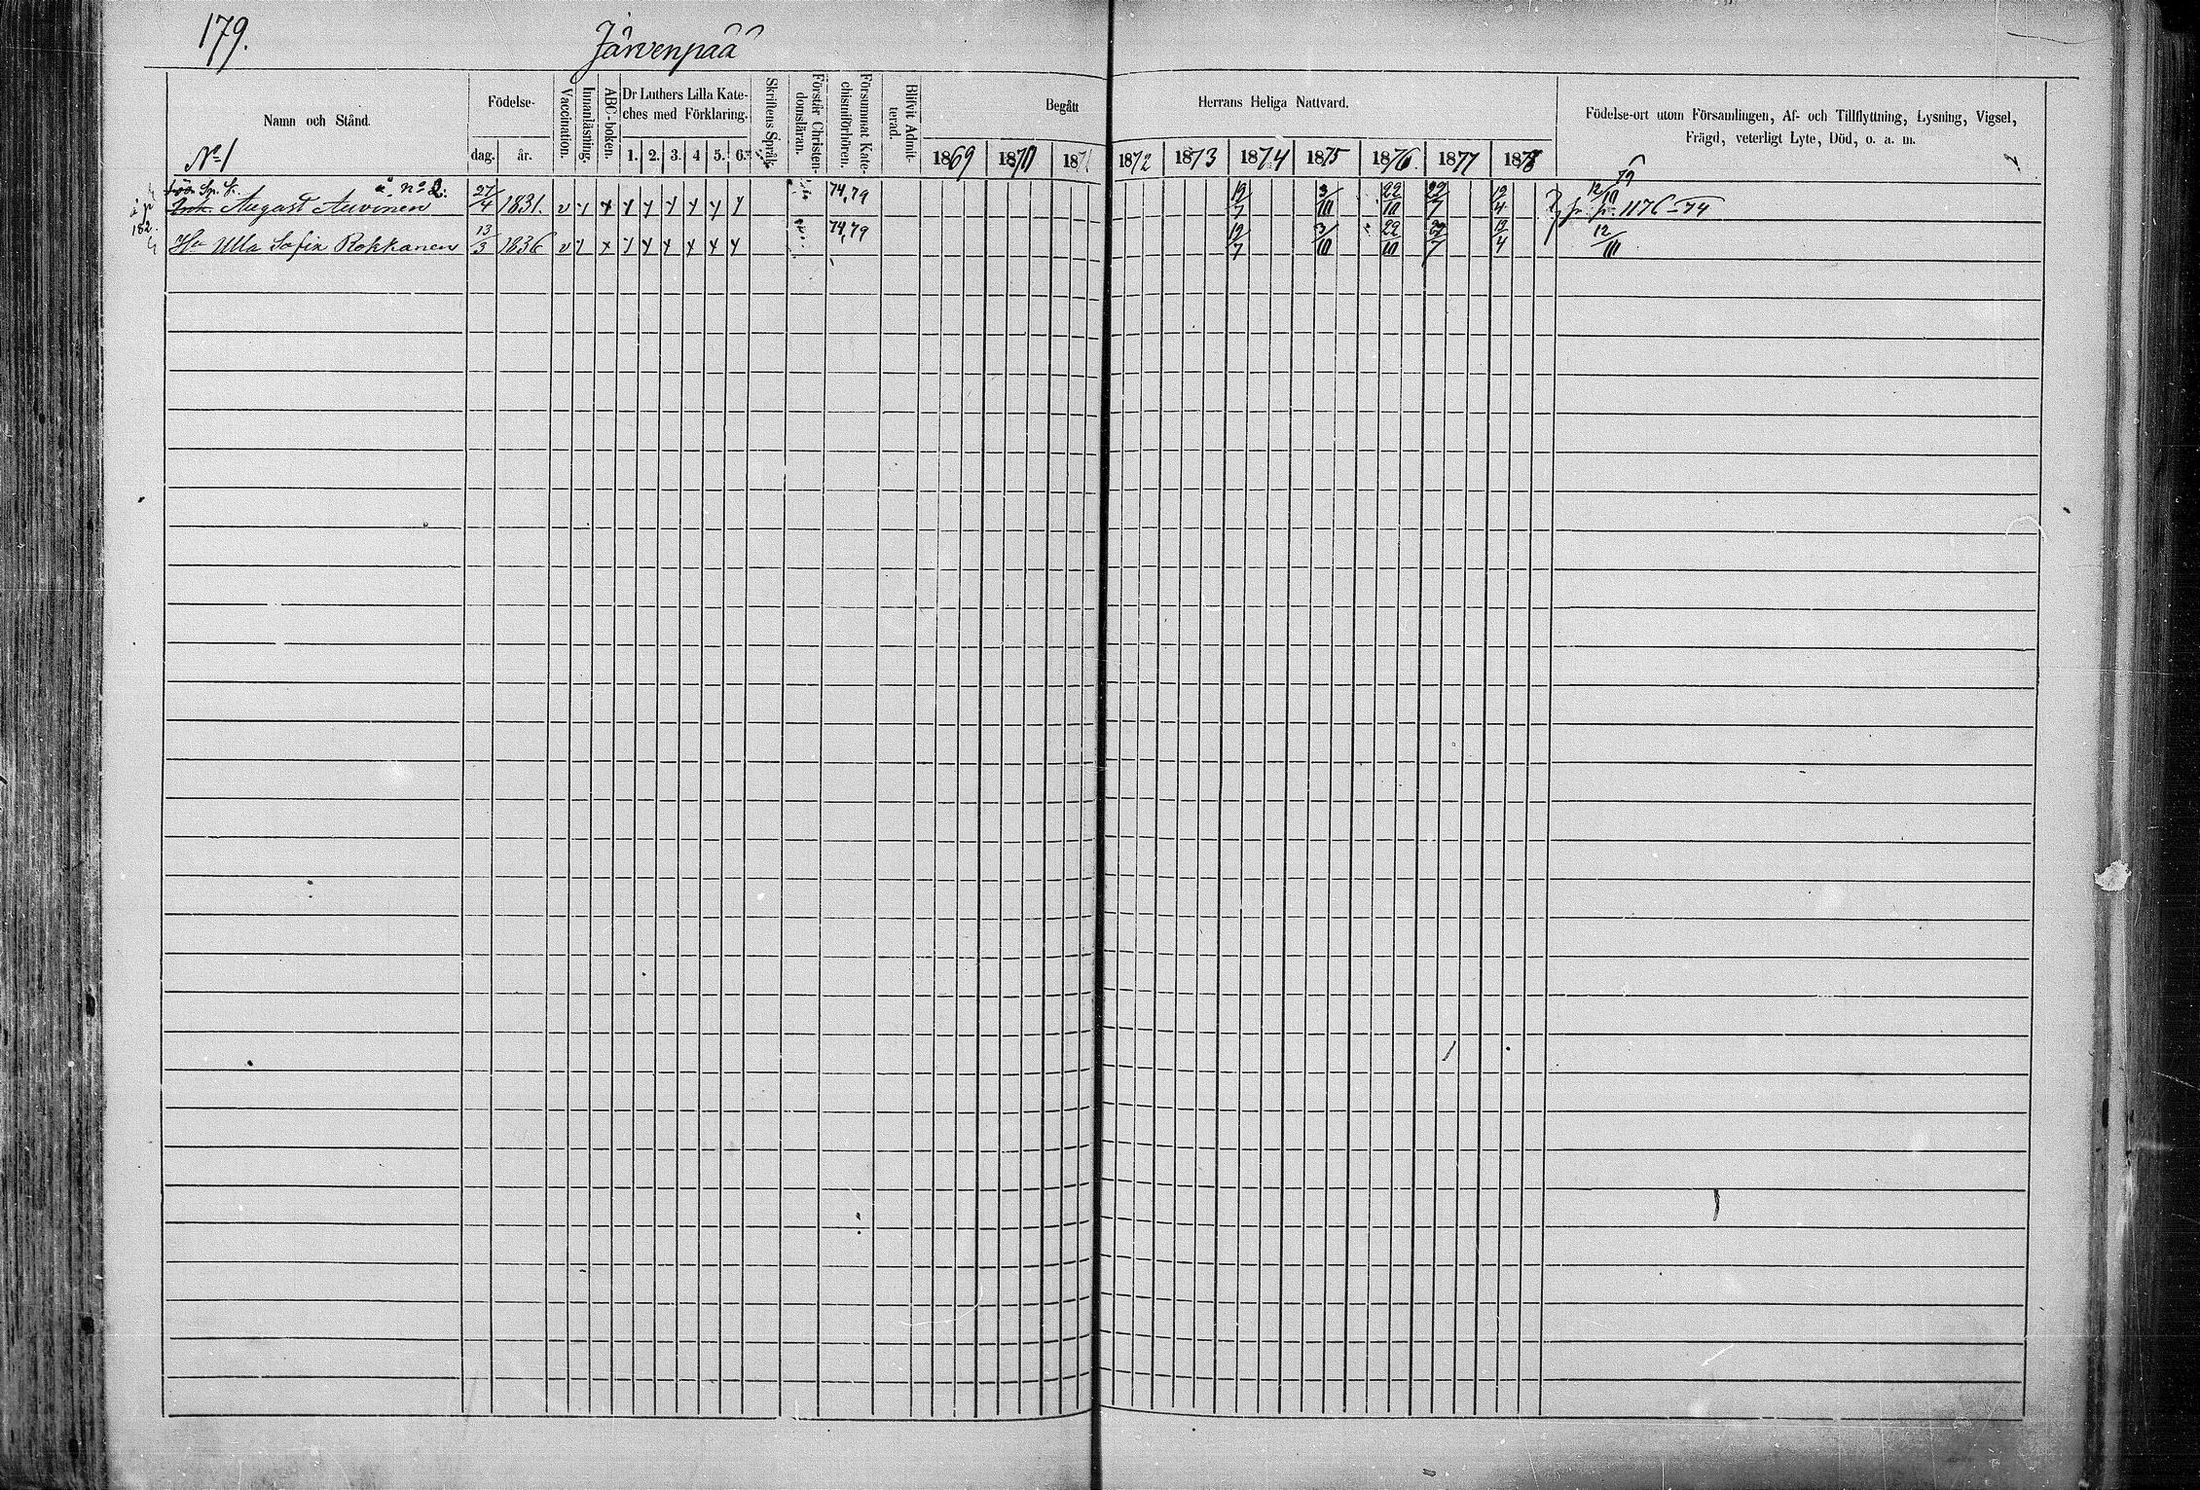 179.
Järvenpää
Namn och Stånd.
Födelse-
dag. år.
Vaccination.
Innanläsning.
ABC-boken.
Dr Luthers Lilla Kate-
ches med Förklaring.
1. 2. 3. 4 5. 6.
Skriftens Språk.
Förstår Christen-
domsläran.
Försummat Kate-
chismiförhören.
Blifvit Admit-
terad.
Begått Herrans Heliga Nattvard.
1869 1870 1871 1872 1873 1874 1875 1876 1877 1878
Födelse-ort utom Församlingen, Af- och Tillflyttning, Lysning, Vigsel,
Frägd, veterligt Lyte, Död, o. a. m.
No 1
å No 2.
August Auvinen 27/4 1831. v y x y y y y y y 74,79 19/7 3/10 22/10 29/7 12/4 12/10 1176-74
182.
Hu Ulla Sofia Rokkanen 13/3 1836 v y x y y y y y y 74,79 19/7 3/10 22/10 29/7 12/4 12/10